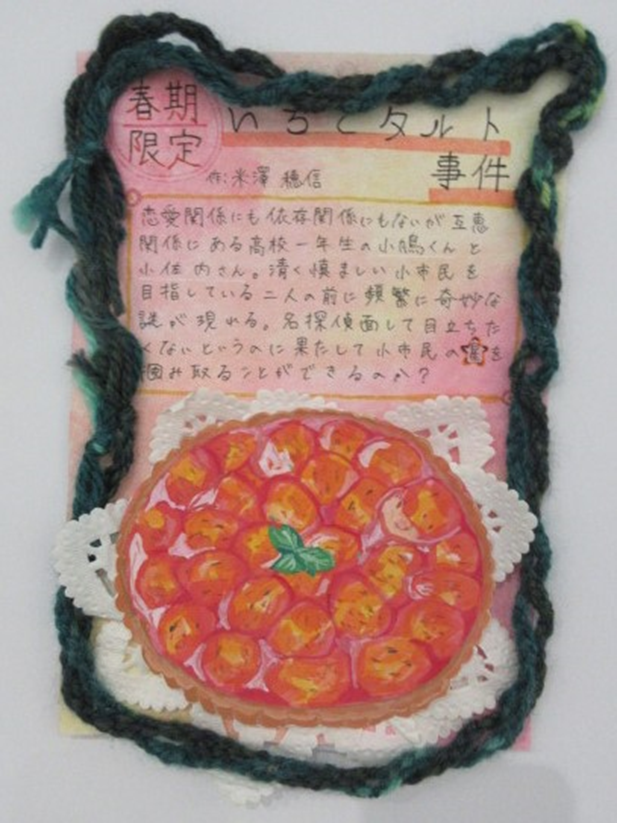 春期
限定
いちごタルト
事件
作:米澤 穂信
恋愛関係にも依存関係にもないが互恵
関係にある高校一年生の小鳩くんと
小佐内さん。清く慎ましい小市民を
目指している二人の前に頻繁に奇妙な
謎が現れる。名探偵面して目立ちた
くないというのに果たして小市民の星を
掴み取ることができるのか?